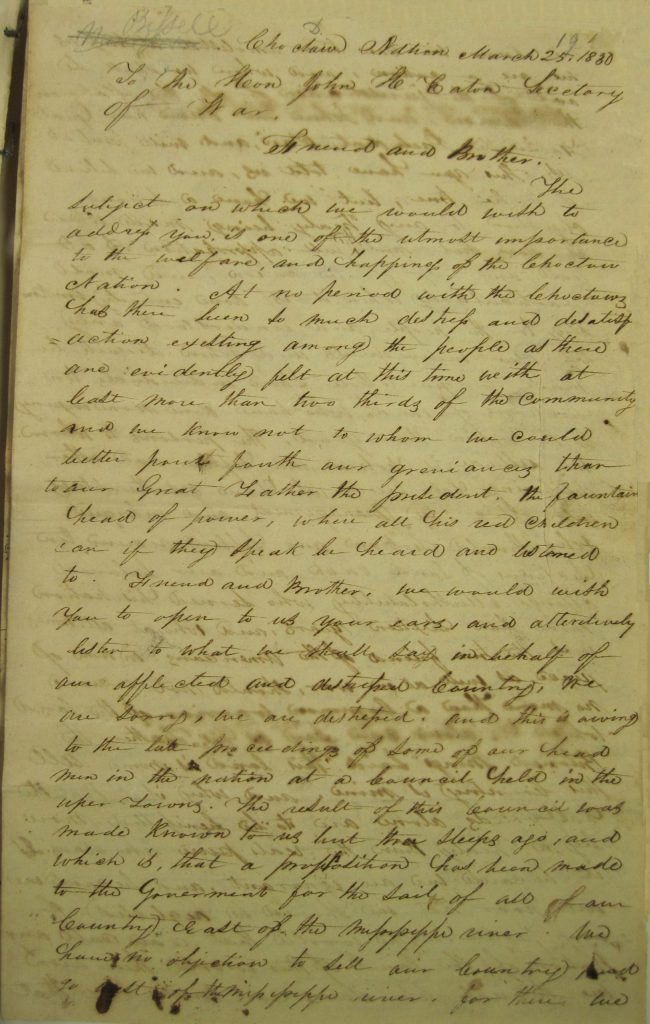 Bissell
Choctaw Nation March 25. 1830
To the Hon John H Eaton Secetory
of War.
Friend and Brother.
The
subject on which we would wish to
address you, is one of the utmost importance
to the welfare, and happiness of the Choctaw
Nation. At no period with the Choctaws
has there been so much destress and desatisf
=action existing among the people as there
are evidently felt at this time with at
least more than two thirds of the community
and we know not to whom we could
better pour fourth our greviances than
to our Great Father the president. the fountain
head of power, where all his red children
can if they speak be heard and listened
to. Friend and Brother, we would wish
you to open to us your ears, and attentively
listen to what we shall say in behalf of
our afflected and destressed Country, We
are sorry, we are destressed. and this is owing
to the late proceedings of some of our head
men in the nation at a Council held in the
uper Towns. The result of this Council was
made Known to us but three sleeps ago, and
which is, that a proposition has been made
to the Goverment for the sail of all of our
Country East of the Missisippe river. We
have no objection to sell our Country and
go west of the Missisippe river. for there we